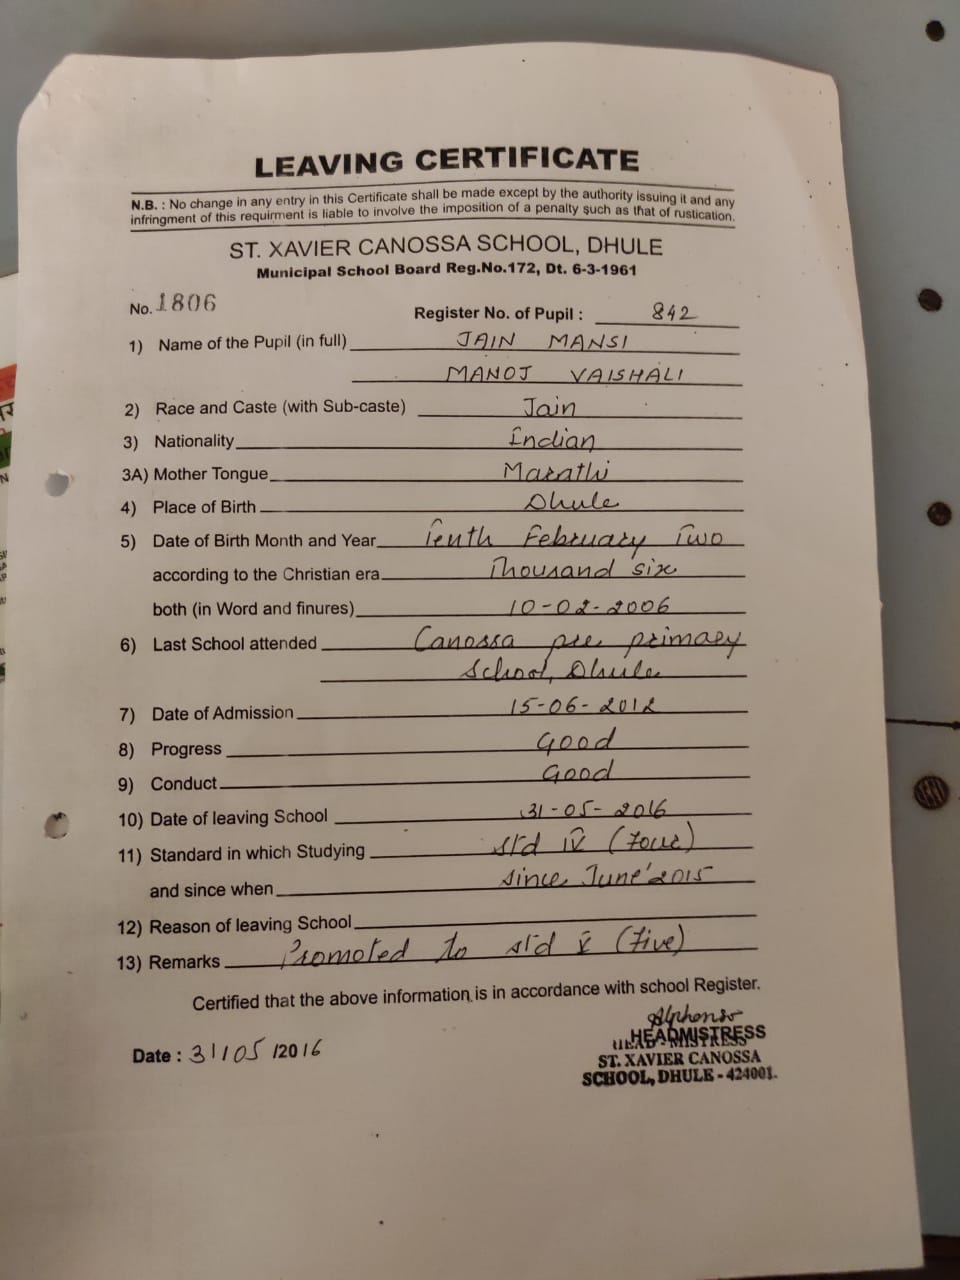 LEAVING CERTIFICATE
N.B. : No change in any entry in this Certificate shall be made except by the authority issuing it and any
infringment of this requirment is liable to involve the imposition of a penalty such as that of rustication.
ST. XAVIER CANOSSA SCHOOL, DHULE
Municipal School Board Reg.No.172, Dt. 6-3-1961
No. 1806 Register No. of Pupil : 842
1) Name of the Pupil (in full) JAIN MANSI
MANOJ VAISHALI
2) Race and Caste (with Sub-caste) Jain
3) Nationality Indian
3A) Mother Tongue Marathi
4) Place of Birth Dhule
5) Date of Birth Month and Year Tenth February Two
according to the Christian era Thousand six
both (in Word and finures) 10-02-2006
6) Last School attended Canossa pre primary
School, Dhule
7) Date of Admission 15-06-2012
8) Progress Good
9) Conduct Good
10) Date of leaving School 31-05-2016
11) Standard in which Studying std IV (Four)
and since when since June'2015
12) Reason of leaving School
13) Remarks Promoted to std V (Five)
Certified that the above information is in accordance with school Register.
Alphonso
Date : 31/05/2016 HEADMISTRESS
ST. XAVIER CANOSSA
SCHOOL, DHULE - 424001.